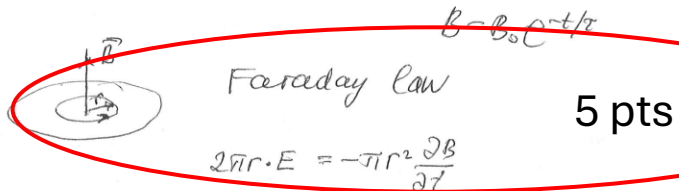 B = B₀ e^{-t/τ}
B⃗
r
Faraday law
5 pts
2πr·E = -πr² ∂B/∂t